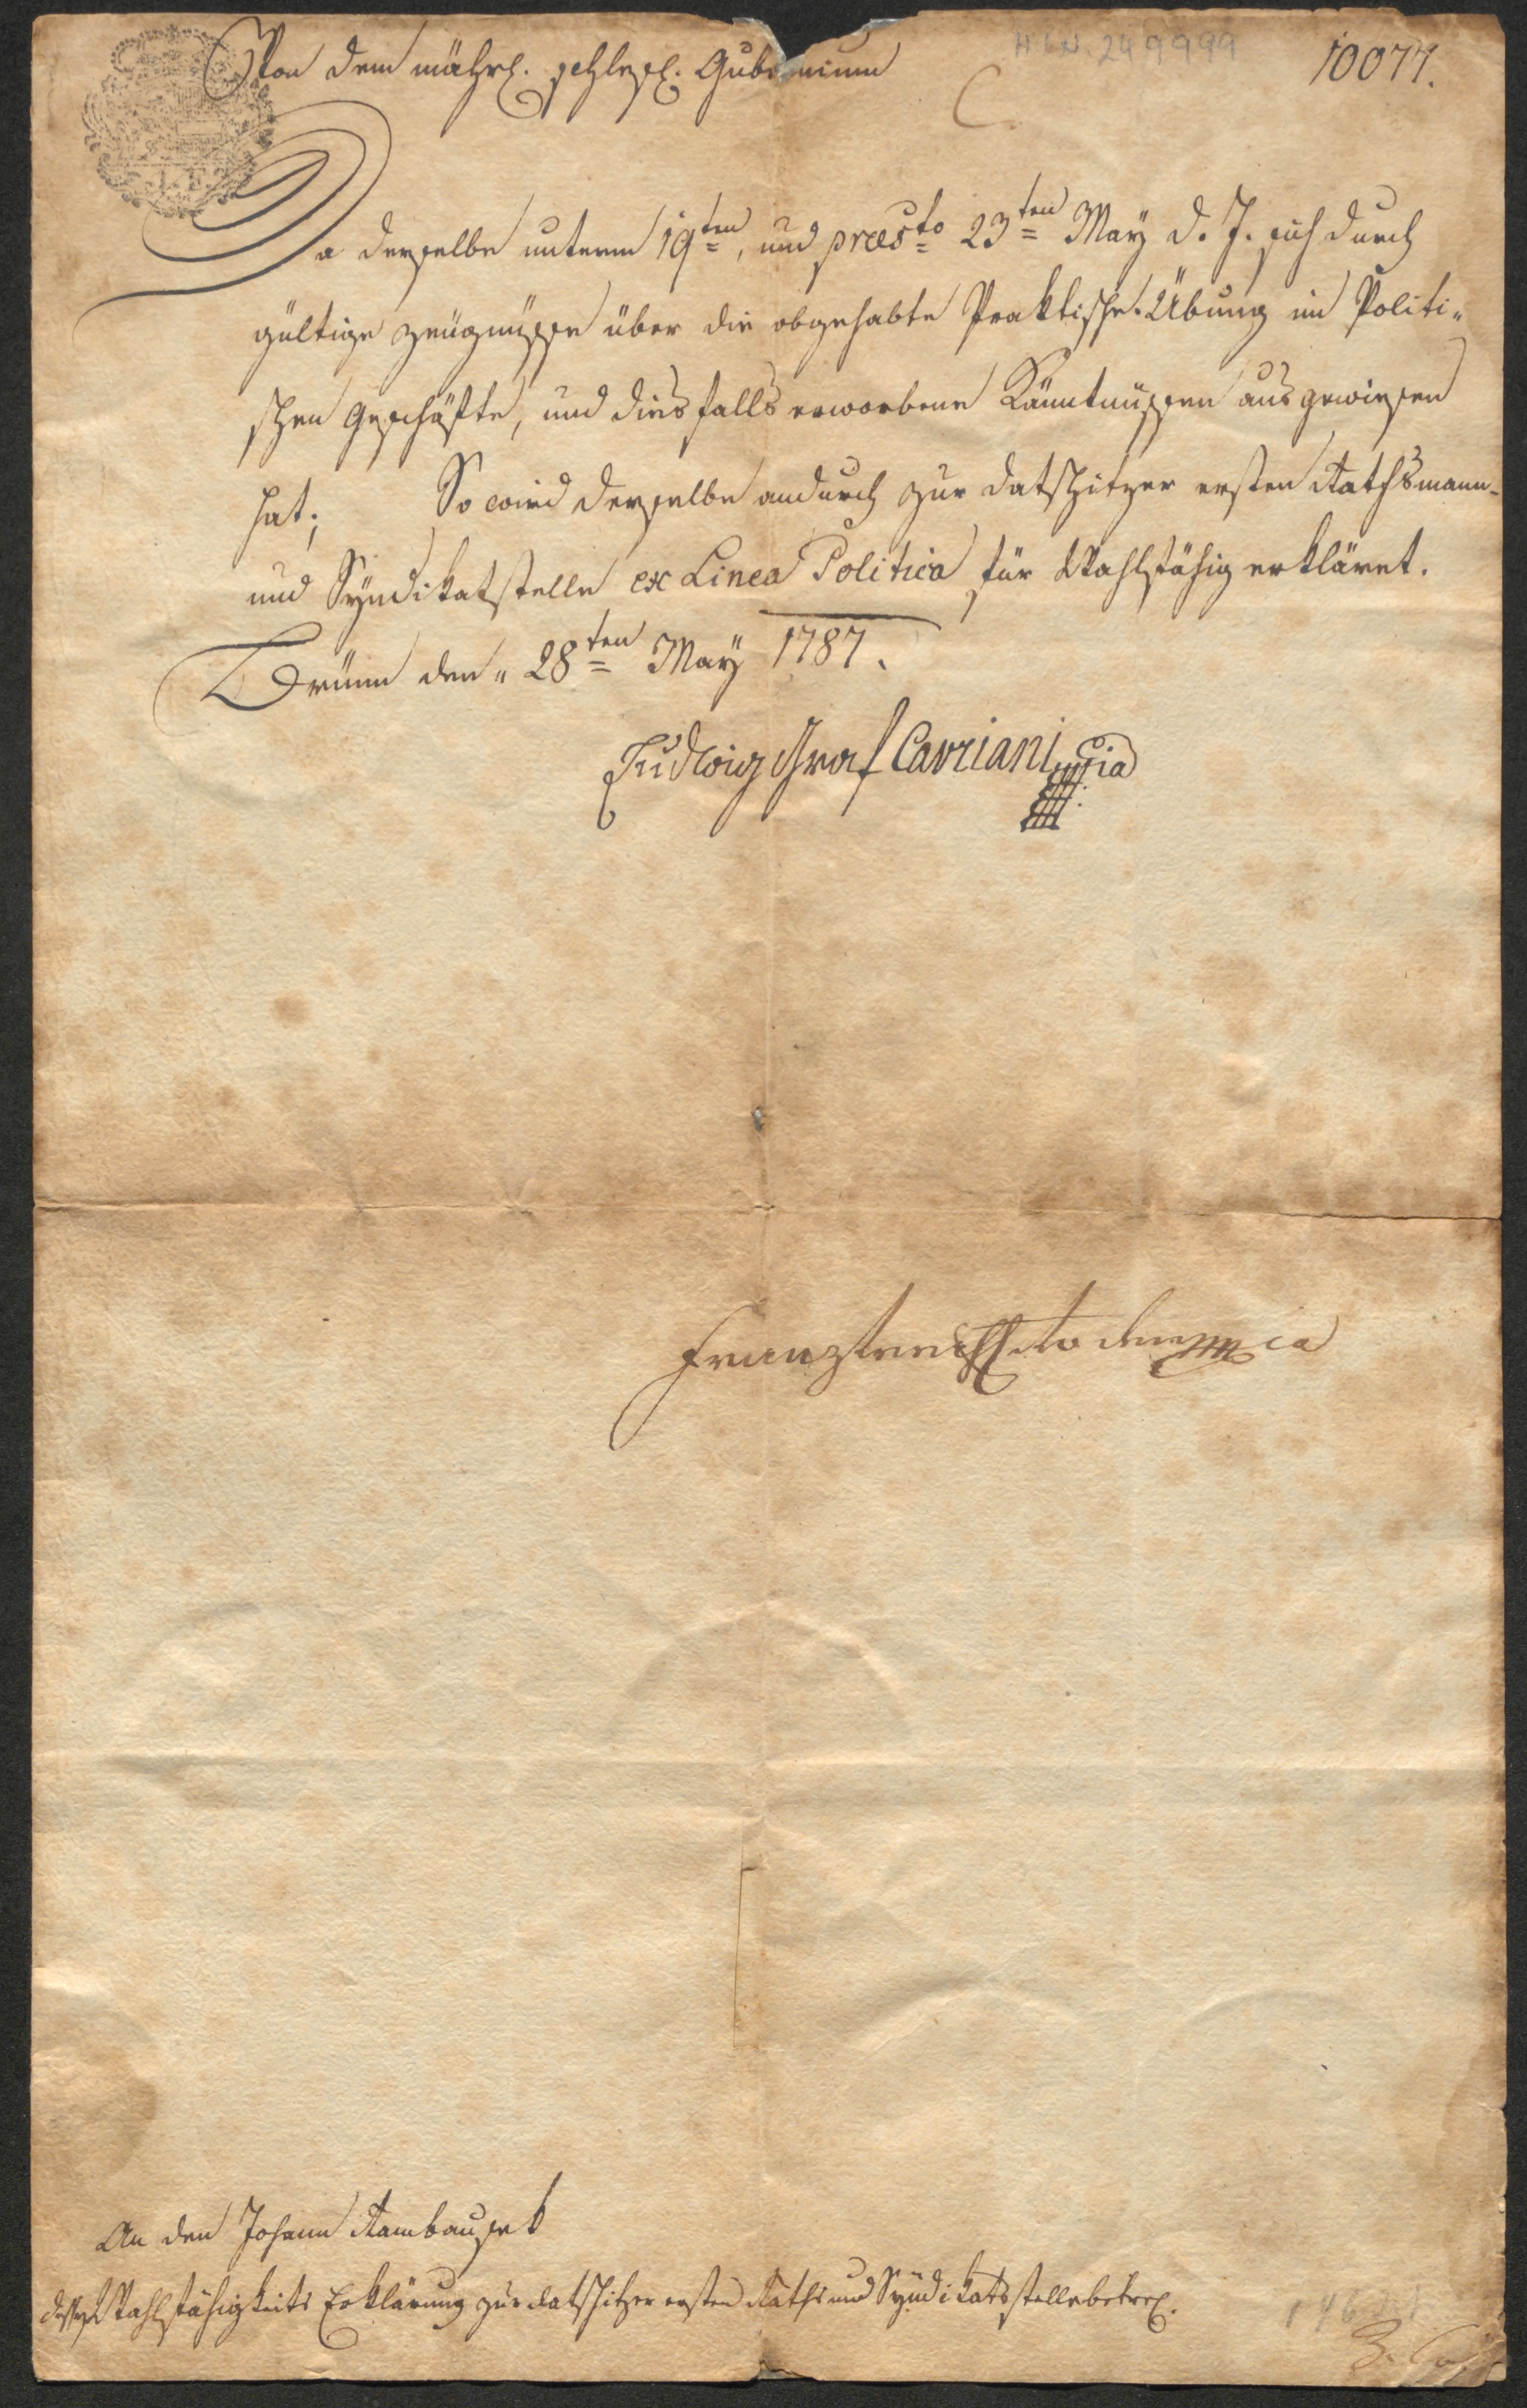 Von dem mährl. schlesl. Gubernium
H I N. 249999
10077.
Da derselbe unterm 19ten, und praesto 23ten May d. J. sich durch
gültige Zeugnüsse über die abgehabte Praktische Übung im Politi-
schen Geschäfte, und diesfalls erworbene Känntnüssen ausgewiesen
hat; So wird derselbe andurch zur Datschitzer ersten Rathsmann-
und Syndikatstelle ex Linea Politica für Wahlfähig erkläret.
Brünn den 28ten May 1787.
Ludwig Graf Cavriani mpia
Franz
An den Johann Rambausek
dessen Wahlfähigkeits Erklärung zur Datschitzer ersten Raths und Syndikatsstelle betrel.